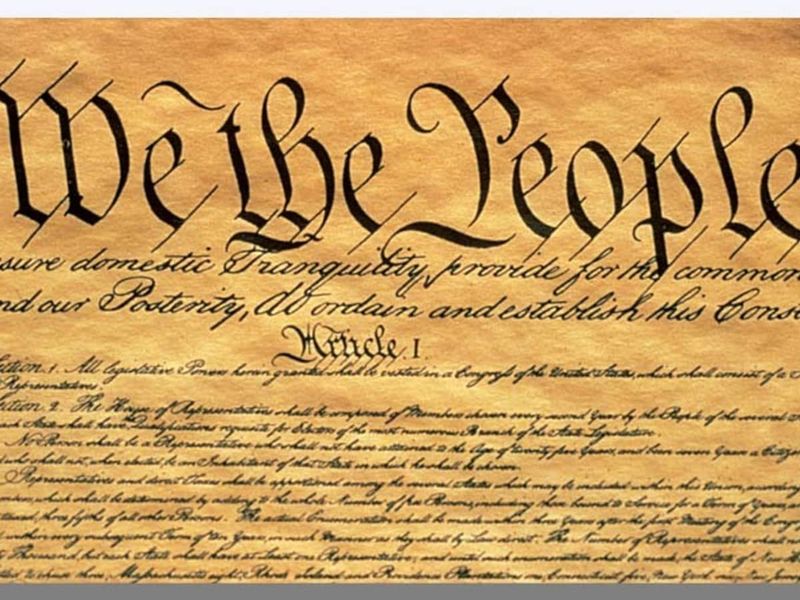 We the People
sure domestic Tranquility, provide for the common
nd our Posterity, do ordain and establish this Const
Article. I.
ection. 1. All legislative Powers herein granted shall be vested in a Congress of the United States, which shall consist of a S
Representatives.
ection. 2. The House of Representatives shall be composed of Members chosen every second Year by the People of the several S
ach State shall have Qualifications requisite for Electors of the most numerous Branch of the State Legislature.
No Person shall be a Representative who shall not have attained to the Age of twenty five Years, and been seven Years a Citizen
d who shall not, when elected, be an Inhabitant of that State in which he shall be chosen.
Representatives and direct Taxes shall be apportioned among the several States which may be included within this Union, according
mbers, which shall be determined by adding to the whole Number of free Persons, including those bound to Service for a Term of Years, an
three fifths of all other Persons. The actual Enumeration shall be made within three Years after the first Meeting of the Congr
within every subsequent Term of ten Years, in such Manner as they shall by Law direct. The Number of Representatives shall not
ty Thousand, but each State shall have at Least one Representative; and until such enumeration shall be made, the State of New H
three, Massachusetts eight, Rhode Island and Providence Plantations one, Connecticut five, New York six, New Jersey